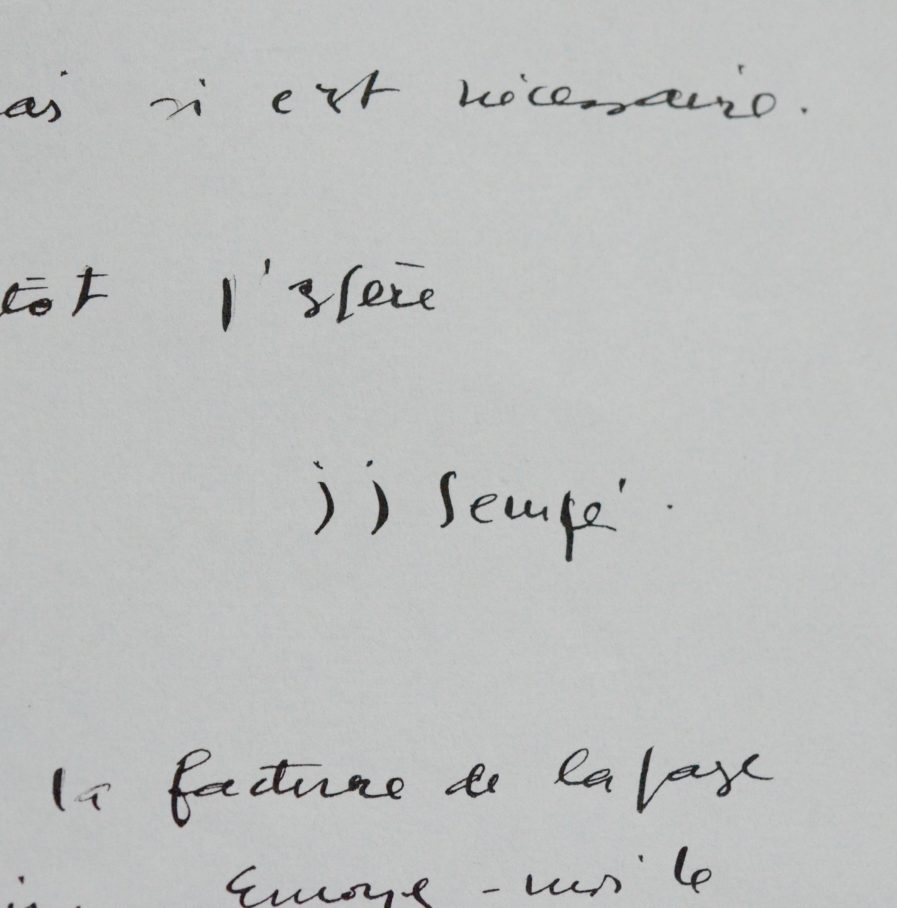 ais si c'est nécessaire.
tôt j'espère
jj Sempé.
la facture de la page
Envoye-moi le